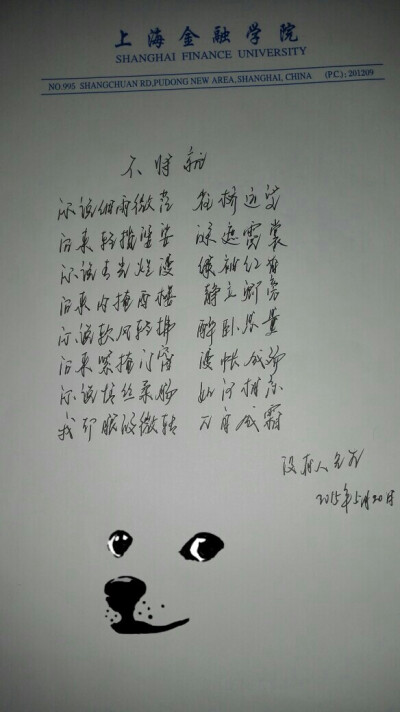 上海金融学院
SHANGHAI FINANCE UNIVERSITY
NO.995 SHANGCHUAN RD,PUDONG NEW AREA,SHANGHAI, CHINA (P.C.): 201209
不将就
你说细雨微茫 桥远望
后来轻揽婆娑 深遮霓裳
你说春光烂漫 绿袖红香
后来内掩西楼 静立卿旁
你说软风轻拂 醉卧思量
后来紧掩门窗 漫帐成殇
你说情丝柔肠 如何相忘
我却眼波微转 兀自成霜
没有人
2015年5月20日